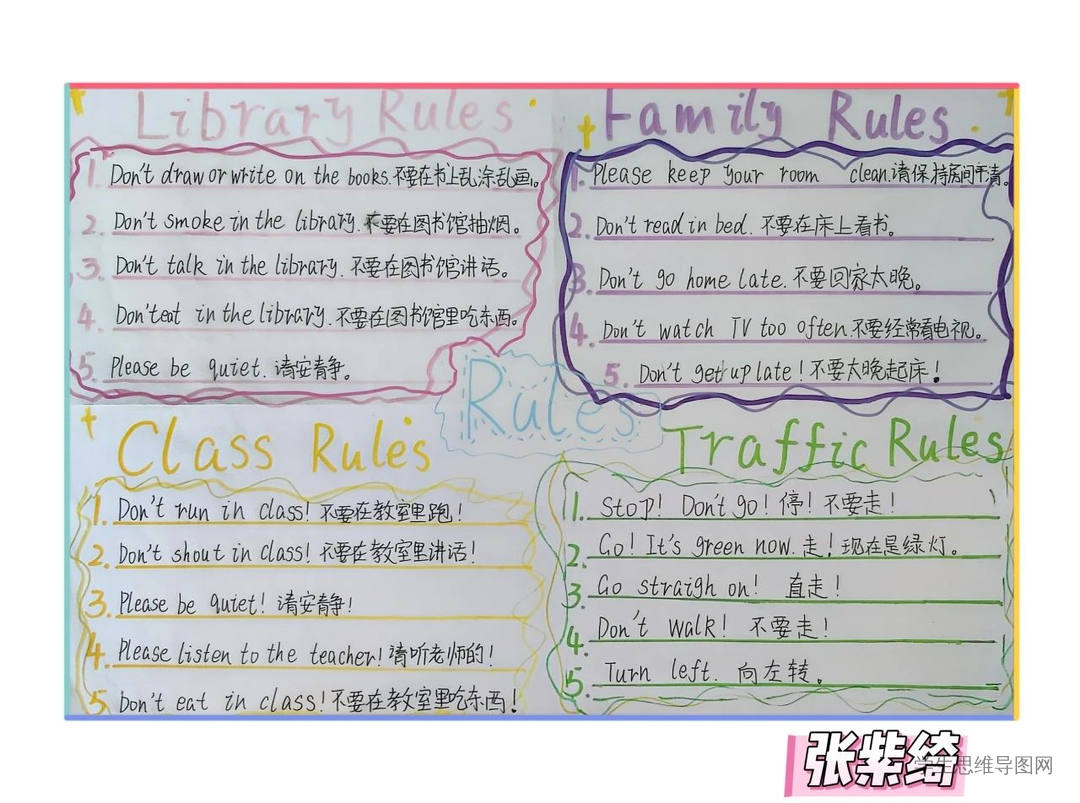 Library Rules
1. Don't draw or write on the books.不要在书上乱涂乱画。
2. Don't smoke in the library.不要在图书馆抽烟。
3. Don't talk in the library.不要在图书馆讲话。
4. Don't eat in the library.不要在图书馆里吃东西。
5. Please be quiet.请安静。
Family Rules
1. Please keep your room clean.请保持房间干清。
2. Don't read in bed.不要在床上看书。
3. Don't go home late.不要回家太晚。
4. Don't watch TV too often.不要经常看电视。
5. Don't get up late!不要太晚起床!
Rules
Class Rules
1. Don't run in class!不要在教室里跑!
2. Don't shout in class!不要在教室里讲话!
3. Please be quiet!请安静!
4. Please listen to the teacher!请听老师的!
5 Don't eat in class!不要在教室里吃东西!
Traffic Rules
1. Stop! Don't go!停!不要走!
2. Go! It's green now.走!现在是绿灯。
3. Go straigh on! 直走!
4. Don't walk! 不要走!
5. Turn left. 向左转。
张紫绮
学生思维导图网